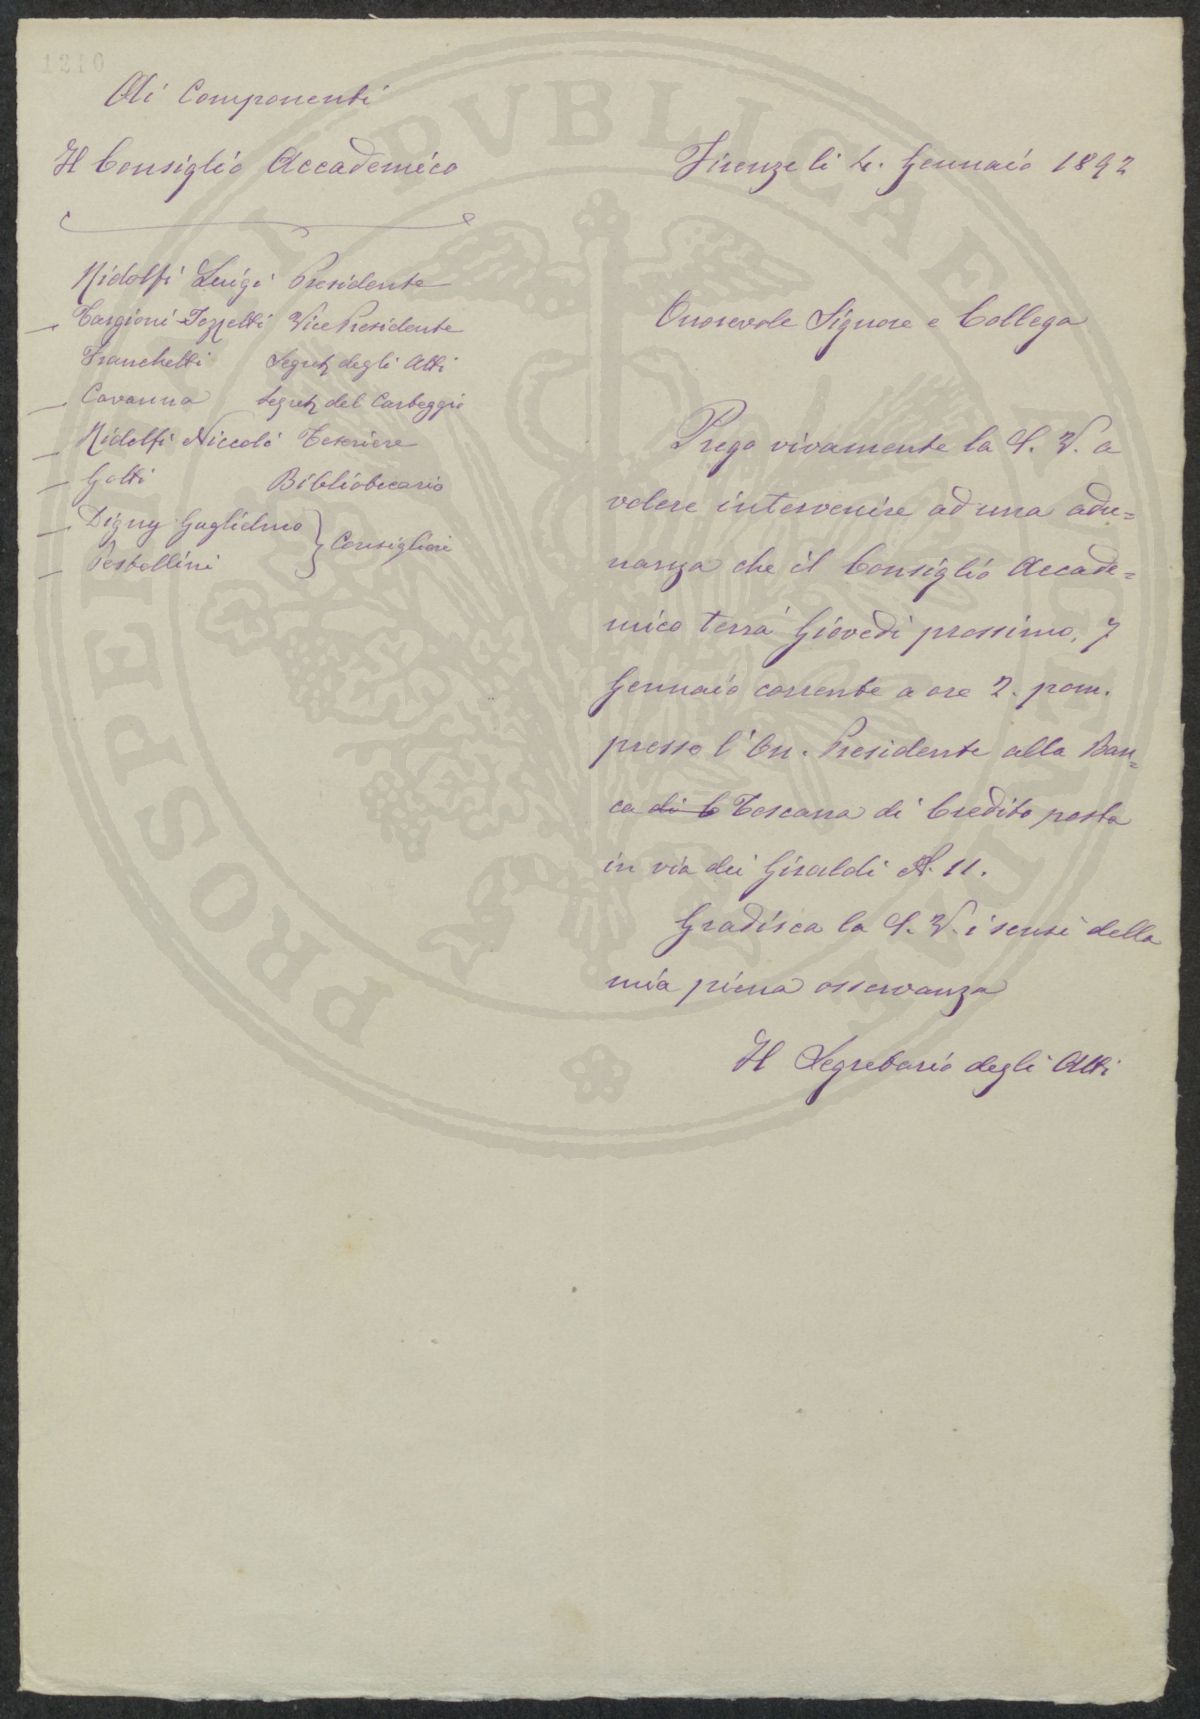 1210
Ai Componenti
Il Consiglio Accademico
Ridolfi Luigi Presidente
Targioni-Tozzetti Vice Presidente
Franchetti Segret degli Atti
Cavanna Segret del Carteggio
Ridolfi Niccolò Tesoriere
Gotti Bibliotecario
Digny Guglielmo } Consiglieri
Pestellini
Firenze li 4. Gennaio 1892
Onorevole Signore e Collega
Prego vivamente la S. V. a
volere intervenire ad una adu=
nanza che il Consiglio Accade=
mico terrà Giovedì prossimo, 7
Gennaio corrente a ore 2. pom.
presso l'On. Presidente alla Ban=
ca di C Toscana di Credito posta
in via dei Giraldi N. 11.
Gradisca la S. V. i sensi della
mia piena osservanza
Il Segretario degli Atti
PROSPERITATI PVBLICAE AVGENDAE